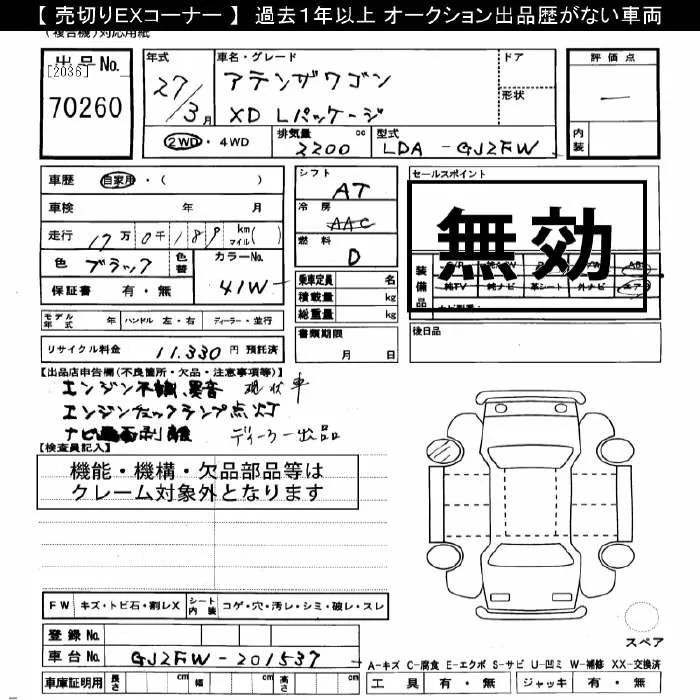 【 売切りEXコーナー 】 過去1年以上 オークション出品歴がない車両
(複合機)対応用紙
出品No.
[2036]
70260
年式
27/3月
車名・グレード
アテンザワゴン
XD Lパッケージ
ドア
形状
評価点
―
内装
2WD・4WD
排気量
2200
cc
型式
LDA - GJ2FW
車歴
自家用・( )
車検 年 月
走行 17万0千189 kmマイル( )
色 ブラック
色替
カラーNo.
41W
保証書 有・無
シフト
AT
冷房
AAC
燃料
D
乗車定員 名
積載量 kg
総重量 kg
セールスポイント
無効
装備品
純TV
純ナビ
革シート
外ナビ
エアB
モデル年式 年
ハンドル 左・右
ディーラー・並行
リサイクル料金 11,330 円 預託済
書類期限
月 日
後日品
【出品店申告欄(不良箇所・欠品・注意事項等)】
エンジン不調、異音 現状車
エンジンチェックランプ点灯
ナビ画面剥離 ディーラー出品
【検査員記入】
機能・機構・欠品部品等は
クレーム対象外となります
FW キズ・トビ石・割レX
シート内装 コゲ・穴・汚レ・シミ・破レ・スレ
登録No.
車台No. GJ2FW-201537
車庫証明用 長さ cm 幅 cm 高さ cm
スペア
A-キズ C-腐食 E-エクボ S-サビ U-凹ミ W-補修 XX-交換済
工具 有・無 ジャッキ 有・無